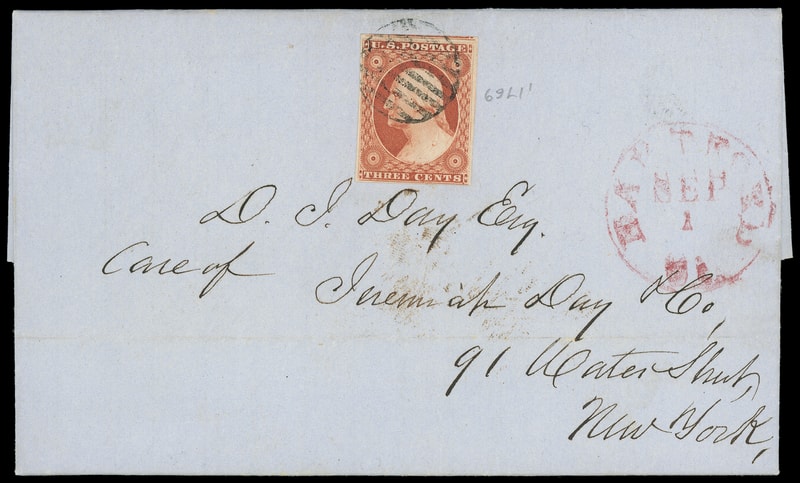 U.S. POSTAGE
THREE CENTS
1769
SEP
1
D. J. Day Esq.
Care of
Jeremiah Day & Co,
91 Water Street,
New York,